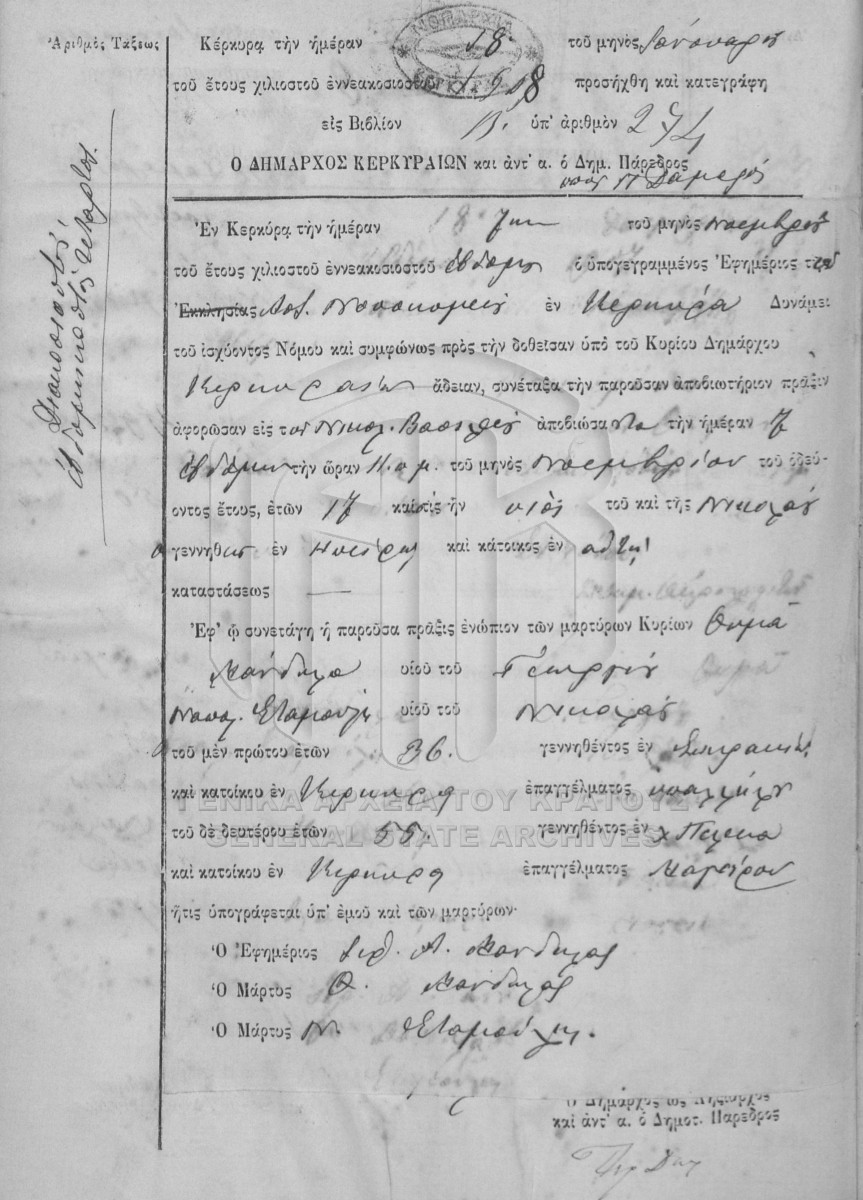 Ἀριθμὸς Τάξεως
Διακοσιοστὸς
ἑβδομηκοστὸς τέταρτος.
ΝΟΜΑΡΧΙΑ
Κέρκυρα τὴν ἡμέραν 18 τοῦ μηνὸς Ἰανουαρίου
τοῦ ἔτους χιλιοστοῦ ἐννεακοσιοστοῦ 1908 προσήχθη καὶ κατεγράφη
εἰς Βιβλίον Β. ὑπ' ἀριθμὸν 274
Ὁ ΔΗΜΑΡΧΟΣ ΚΕΡΚΥΡΑΙΩΝ καὶ ἀντ' α. ὁ Δημ. Πάρεδρος
Ἐν Κερκύρᾳ τὴν ἡμέραν 18 τοῦ μηνὸς Νοεμβρίου
τοῦ ἔτους χιλιοστοῦ ἐννεακοσιοστοῦ ἑβδόμου ὁ ὑπογεγραμμένος Ἐφημέριος τοῦ
Ἐκκλησίας Νοσοκομείου ἐν Κερκύρᾳ Δυνάμει
τοῦ ἰσχύοντος Νόμου καὶ συμφώνως πρὸς τὴν δοθεῖσαν ὑπὸ τοῦ Κυρίου Δημάρχου
Κερκυραίων ἄδειαν, συνέταξα τὴν παροῦσαν ἀποβιωτήριον πρᾶξιν
ἀφορῶσαν εἰς τὸν Νικολ. Βασιλείου ἀποβιώσαντα τὴν ἡμέραν 7
ἑβδόμην τὴν ὥραν 11 π. μ. τοῦ μηνὸς Νοεμβρίου τοῦ ὁδεύ-
οντος ἔτους, ἐτῶν 17 καὶ τίς ἦν υἱὸς τοῦ καὶ τῆς Νικολάου
γεννηθεὶς ἐν Ἠπείρῳ καὶ κάτοικος ἐν αὐτῇ
καταστάσεως —
Ἐφ' ᾧ συνετάγη ἡ παροῦσα πρᾶξις ἐνώπιον τῶν μαρτύρων Κυρίων Θωμᾶ
Κανδηλα υἱοῦ τοῦ Γεωργίου
Νικολ. Σταμούλη υἱοῦ τοῦ Νικολάου
τοῦ μὲν πρώτου ἐτῶν 36. γεννηθέντος ἐν
καὶ κατοίκου ἐν Κερκύρᾳ ἐπαγγέλματος ὑπαλλήλου
τοῦ δὲ δευτέρου ἐτῶν 55. γεννηθέντος ἐν χ Πέλεκα
καὶ κατοίκου ἐν Κερκύρᾳ ἐπαγγέλματος Μαγείρου
ἥτις ὑπογράφεται ὑπ' ἐμοῦ καὶ τῶν μαρτύρων·
Ὁ Ἐφημέριος Α. Κανδηλας
Ὁ Μάρτυς Θ. Κανδηλας
Ὁ Μάρτυς Ν. Σταμούλης.
Ὁ Δήμαρχος ὡς Ληξίαρχος
καὶ ἀντ' α. ὁ Δημοτ. Πάρεδρος
ΓΕΝΙΚΑ ΑΡΧΕΙΑ ΤΟΥ ΚΡΑΤΟΥΣ
GENERAL STATE ARCHIVES